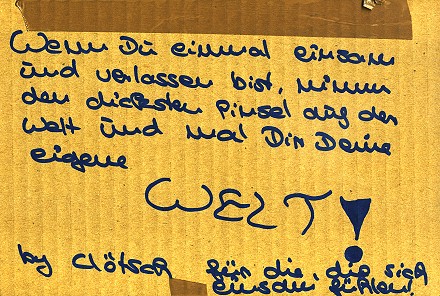 Wenn Du einmal einsam
und verlassen bist, nimm
den dicksten Pinsel auf der
Welt und mal Dir Deine
eigene
WELT!
by clötsch für die, die sich
einsam fühlen!